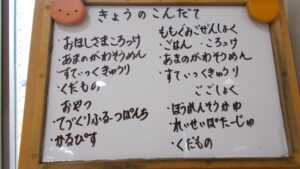 きょうのこんだて
・おほしさまころっけ
・あまのがわそうめん
・すてぃっくきゅうり
・くだもの
おやつ
・てづくりふるーつぽんち
・かるぴす
ももぐみごぜんしょく
・ごはん ころっけ
・あまのがわそうめん
・すてぃっくきゅうり
ごごしょく
・ほうれんそうかゆ
・れいせいぽたーじゅ
・くだもの